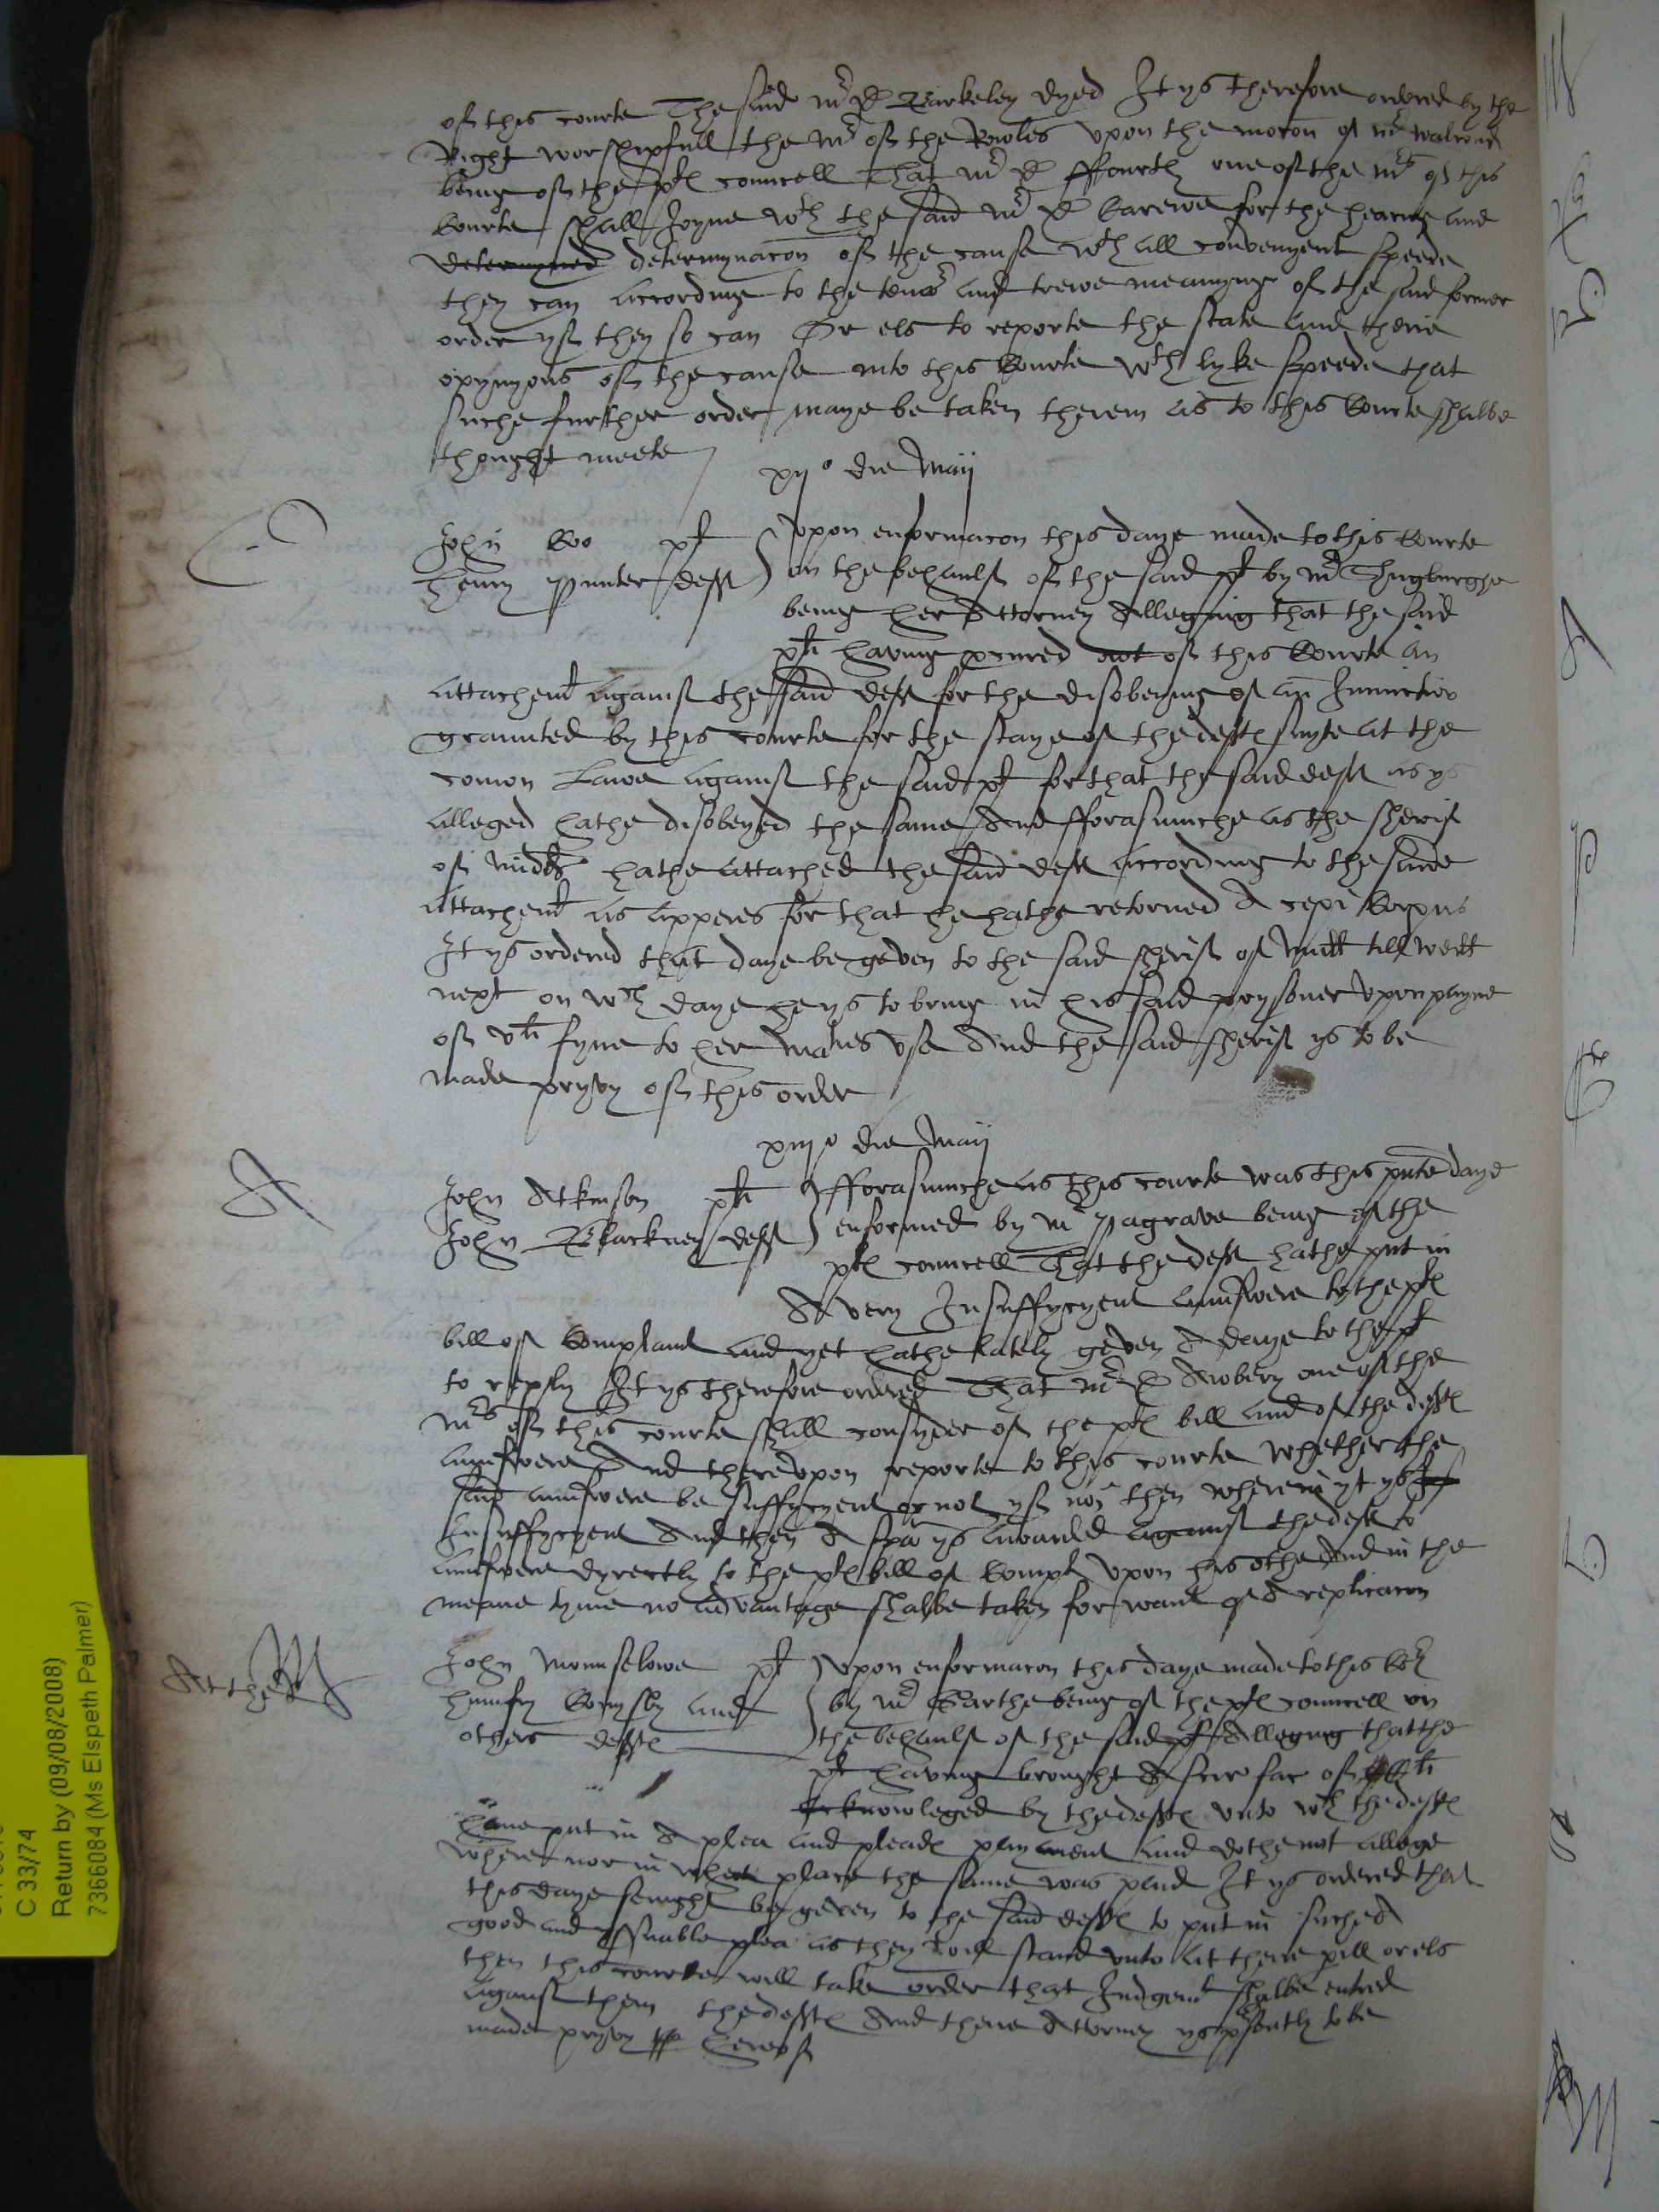 of this courte The said mr D Barkeley dyed It ys therefore ordered by the
Right worshipfull the mr of the Rowles vpon the mocon of mr walrond
being of the pltes councell That mr D fforth one of the mrs of this
Courte shall Joyne wth the said mr D Carewe for the hearing and
determyned determynacon of the cause wth all convenyent speede
they can according to the tenor and trewe meanyng of the said former
order yf they so can Or els to reporte the state and theire
opynyons of the cause into this Courte wth lyke speede that
suche further order maye be taken therein as to this Courte shalbe
thought meete
xijo die Maij
C
John Coo plt
Henry Punter deft
vpon enformacon this daye made to this Courte
on the behaulf of the said plt by mr
being her Attorney Alleging that the said
plt having pcured owt of this Courte an
attachemt against the said deft for the disobeying of an Iniunction
graunted by this courte for the staye of the deftes suyte at the
comon Lawe against the said plt for that the said deft as ys
alleged hathe disobeyed the same And fforasmuche as the sherif
of midds hathe attached the said deft according to the same
attachemt as apperes for that he hathe retorned A cepi Corpus
It ys ordered that daye be geven to the said sherif of midd till
next on wch daye he ys to bring in his said prysoner vpon payne
of vli fyne to her maties vse And the said sherif ys to be
made pryvy of this order
xiijo die Maij
A
John Atkinson plt
John Blackney deft
fforasmuche as this courte was this pnte daye
enformed by mr Pagrave being of the
pltes councell That the deft hathe put in
A very Insuffycyent aunswere to the pltes
bill of Complaint and yet hathe lately geven A daye to the plt
to reply It ys therefore ordered That mr D Awbery one of the
mrs of this courte shall consyder of the pltes bill and of the deftes
aunswere And therevpon reporte to this courte whether the
said aunswere be suffycyent or not yf not then wherein yt ys
Insuffycyent And then A spa ys awarded against the deft to
aunswere dyrectly to the pltes bill of Complt vpon his othe And in the
meane tyme no advantage shalbe taken for want of A replicacon
John Mounselowe plt
Humfry Cornysh and
others deftes
vpon enformacon this daye made to this Cort
by mr Garthe being of the pltes councell on
the behaulf of the said plt Alleging that the
plt having brought A scire fac of
Acknowleged by the deftes vnto wch the deftes
have put in A plea and pleade payment and dothe not allege
where nor in what place the same was paid It ys ordered that
this daye senight be geven to the said deftes to put in suche A
good and Issuable plea as they will stand vnto at there pill or els
then this courte will take order that Iudgemt shalbe entred
against them the deftes And there Attorney ys psently to be
made pryvy hereof
C 33/74
Return by (09/08/2008)
7366084 (Ms Elspeth Palmer)